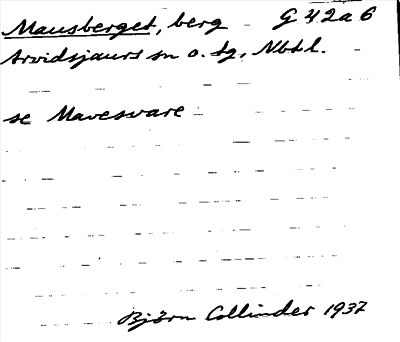 Mausberget, berg G 42a6
Arvidsjaurs sn o. tg, Nbtl.
se Mavesvare
Björn Collinder 1937